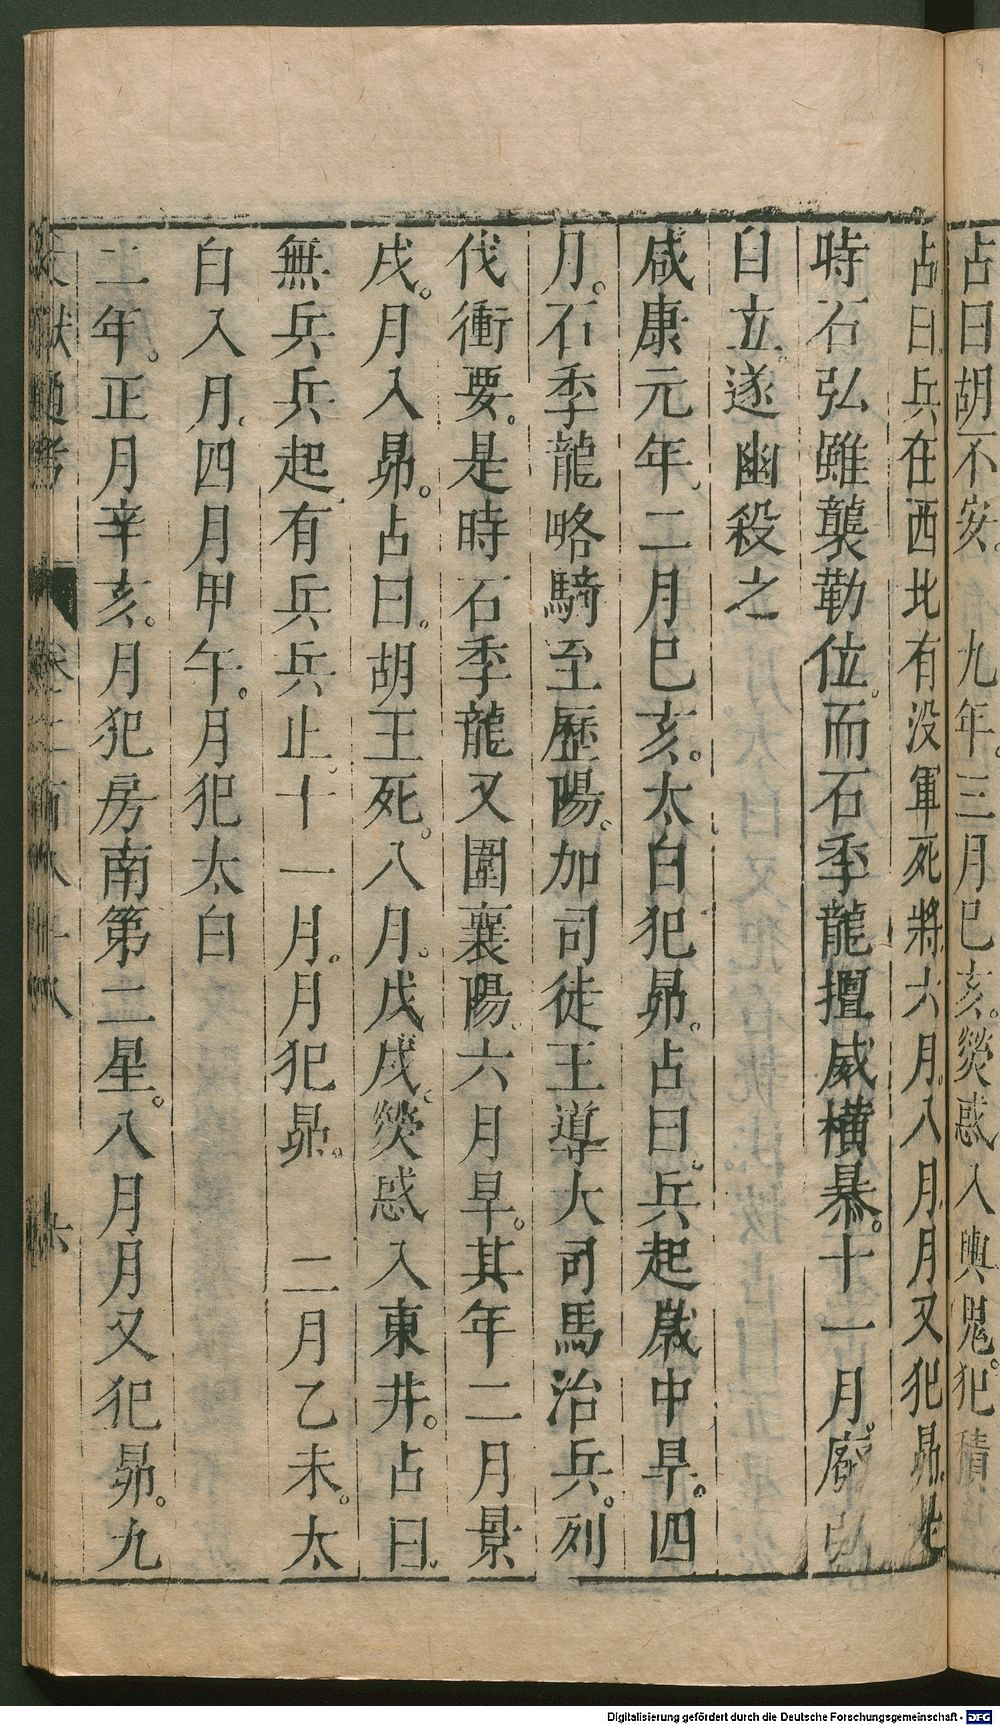 占曰胡不安。九年。三月己亥。熒惑入輿鬼。犯積
占曰。兵在西北有没軍死將六月。八月月又犯昴是
時石弘雖襲勒位。而石季龍擅威橫暴。十一月。廢弘
自立。遂幽殺之
咸康元年。二月己亥。太白犯昴。占曰。兵起歲中旱。四
月。石季龍略騎至歷陽。加司徒王導大司馬治兵。列
伐衝要。是時石季龍又圍襄陽。六月旱。其年二月景
戌。月入昴。占曰。胡王死。八月。戊戌。熒惑入東井。占曰。
無兵兵起。有兵兵止。十一月。月犯昴。二月乙未。太
白入月。四月甲午。月犯太白
二年。正月辛亥。月犯房南第二星。八月月又犯昴。九
文獻通考 卷二百八十八 六
Digitalisierung gefördert durch die Deutsche Forschungsgemeinschaft - DFG